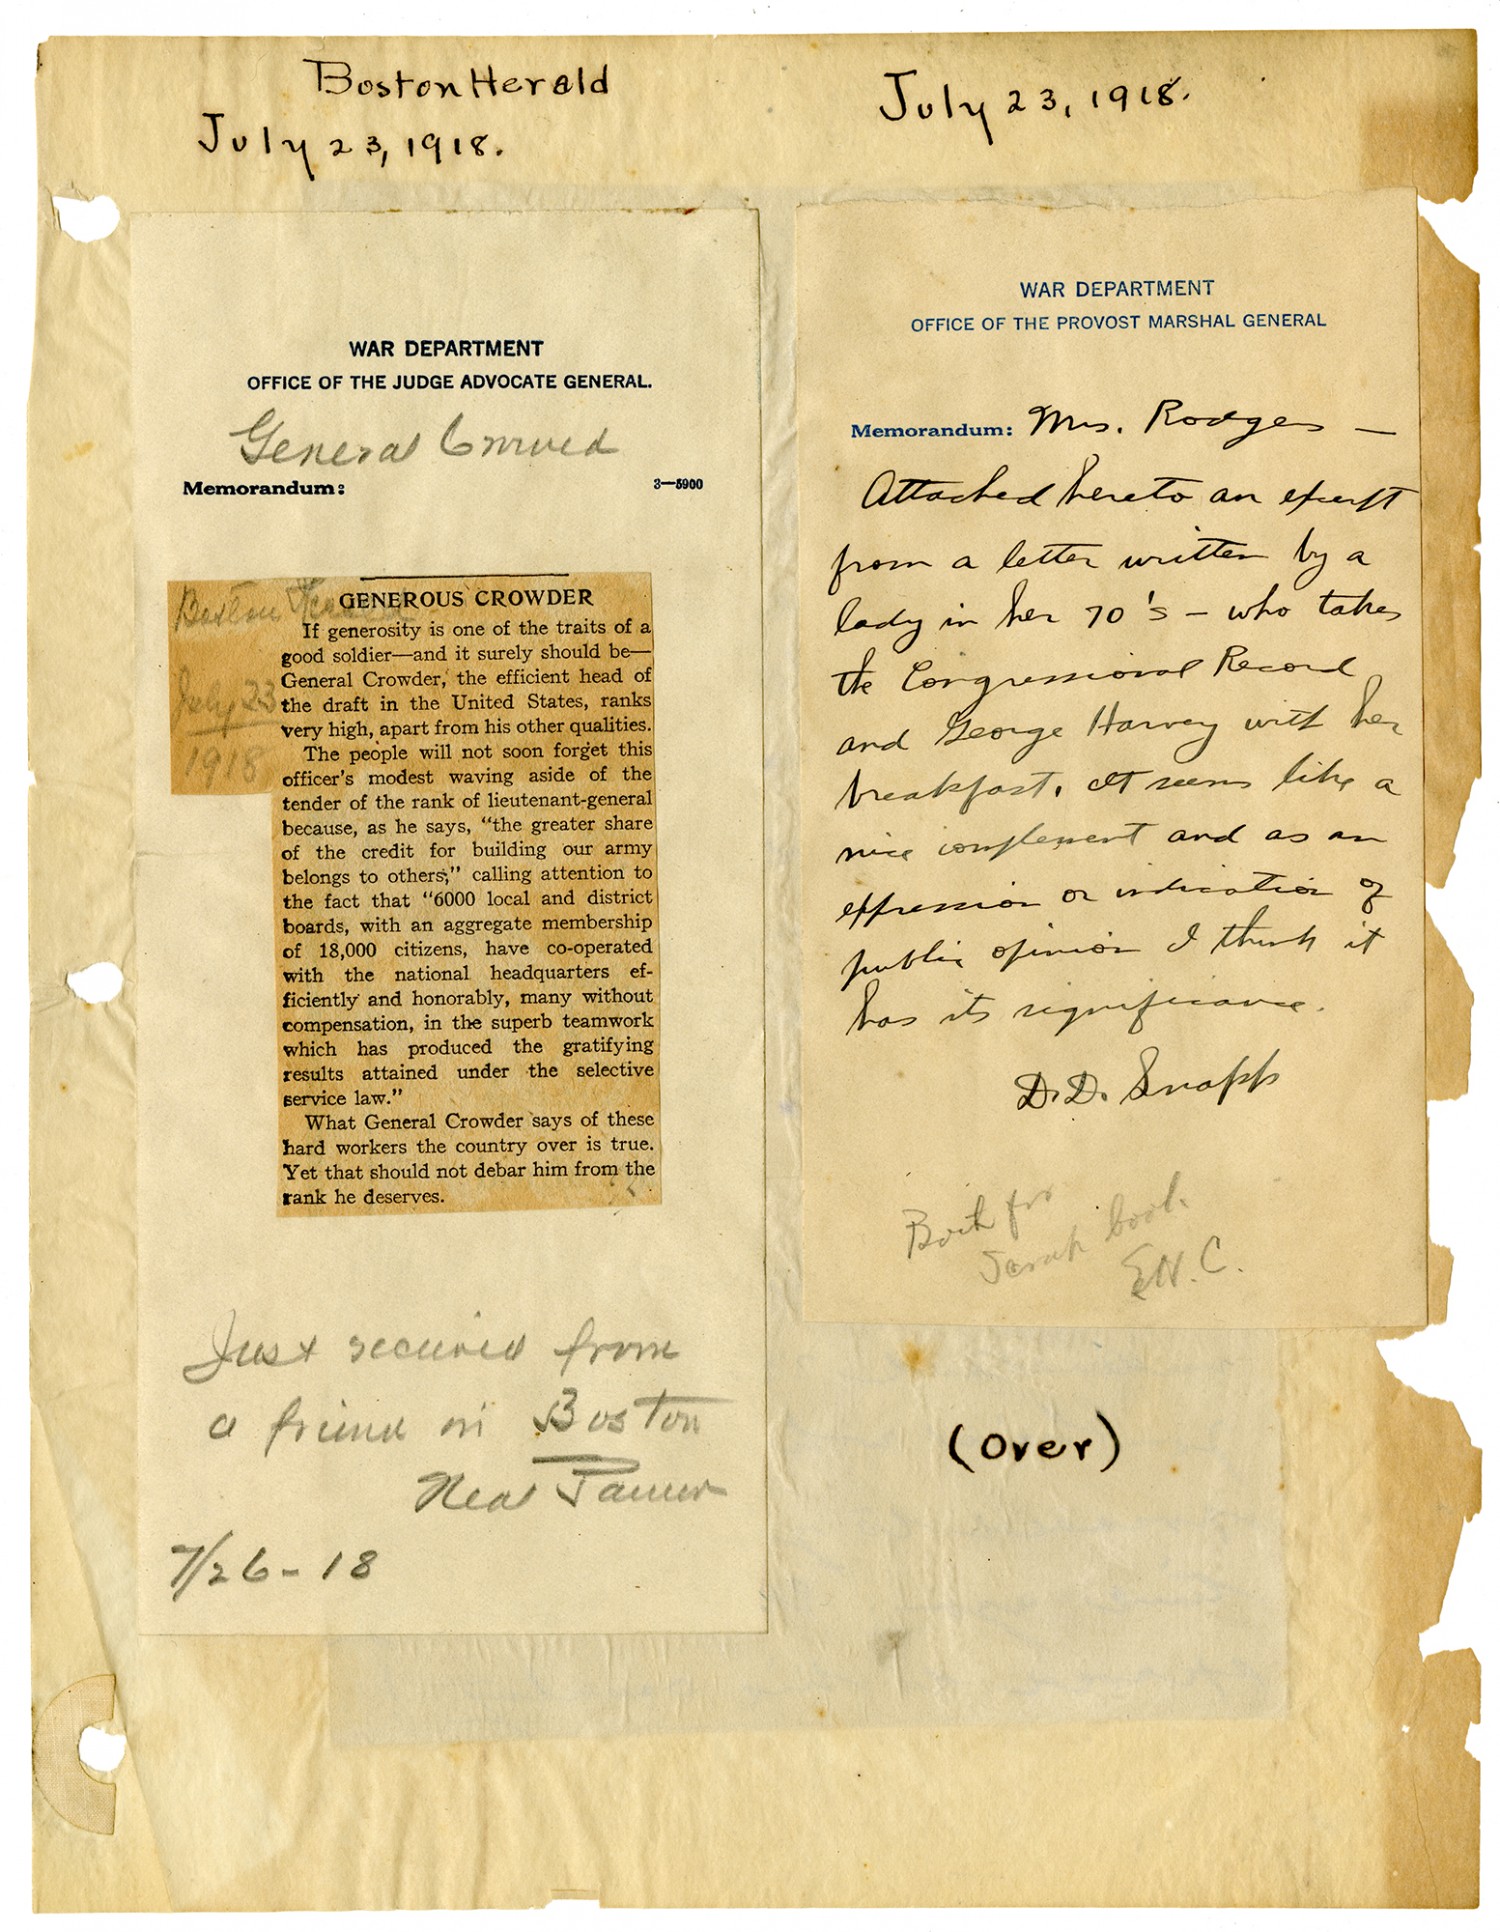 Boston Herald
July 23, 1918.
July 23, 1918.
WAR DEPARTMENT
OFFICE OF THE JUDGE ADVOCATE GENERAL.
General
Memorandum:
3—5900
Boston
July 23
1918
GENEROUS CROWDER
If generosity is one of the traits of a
good soldier—and it surely should be—
General Crowder, the efficient head of
the draft in the United States, ranks
very high, apart from his other qualities.
The people will not soon forget this
officer's modest waving aside of the
tender of the rank of lieutenant-general
because, as he says, "the greater share
of the credit for building our army
belongs to others," calling attention to
the fact that "6000 local and district
boards, with an aggregate membership
of 18,000 citizens, have co-operated
with the national headquarters ef-
ficiently and honorably, many without
compensation, in the superb teamwork
which has produced the gratifying
results attained under the selective
service law."
What General Crowder says of these
hard workers the country over is true.
Yet that should not debar him from the
rank he deserves.
Just received from
a friend in Boston
7/26-18
WAR DEPARTMENT
OFFICE OF THE PROVOST MARSHAL GENERAL
Memorandum: Mrs. Rodgers —
Attached hereto an exerpt
from a letter written by a
lady in her 70's — who takes
the Congressional Record
and George Harvey with her
breakfast. It seems like a
nice complement and as an
expression or indication of
public opinion I think it
has its significance.
D.D. Snapp
Both for
book.
E.H.C.
(over)